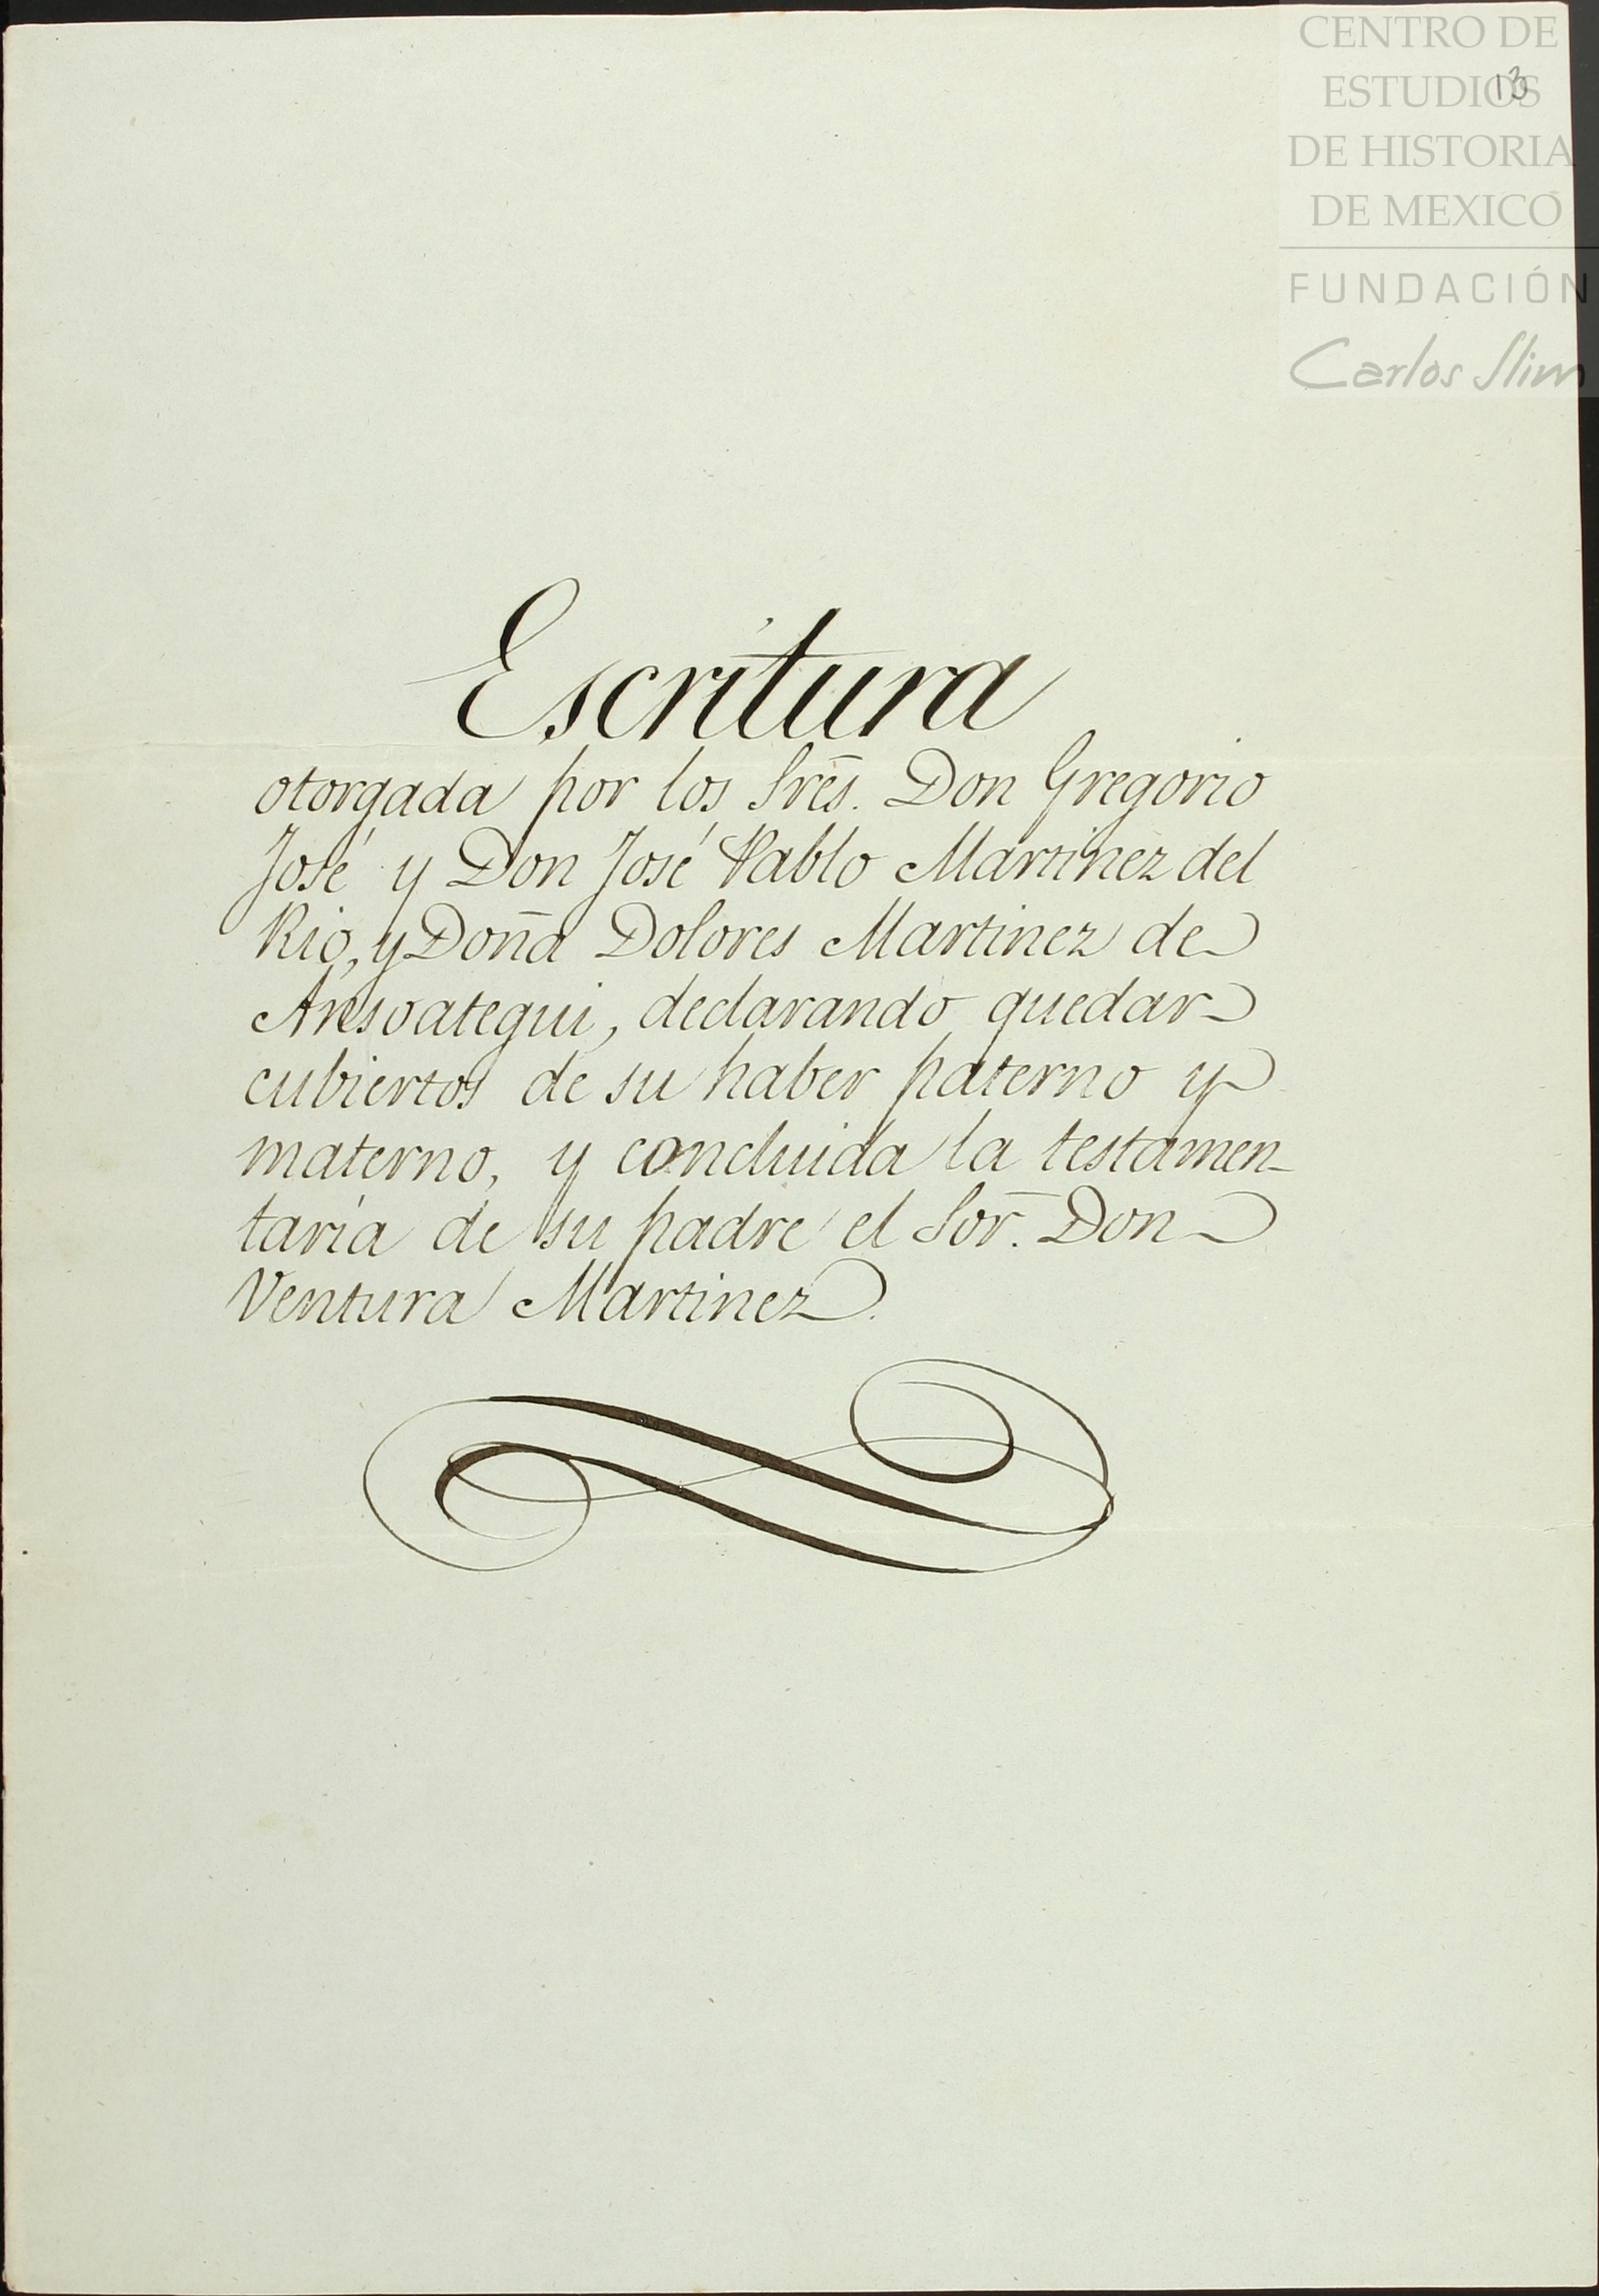 CENTRO DE
ESTUDIOS
13
DE HISTORIA
DE MEXICO
FUNDACIÓN
Carlos Slim
Escritura
otorgada por los Sres. Don Gregorio
José y Don José Pablo Martinez del
Rio, y Doña Dolores Martinez de
Ansoategui, declarando quedar
cubiertos de su haber paterno y
materno, y concluida la testamen-
taría de su padre el Sor. Don
Ventura Martinez.